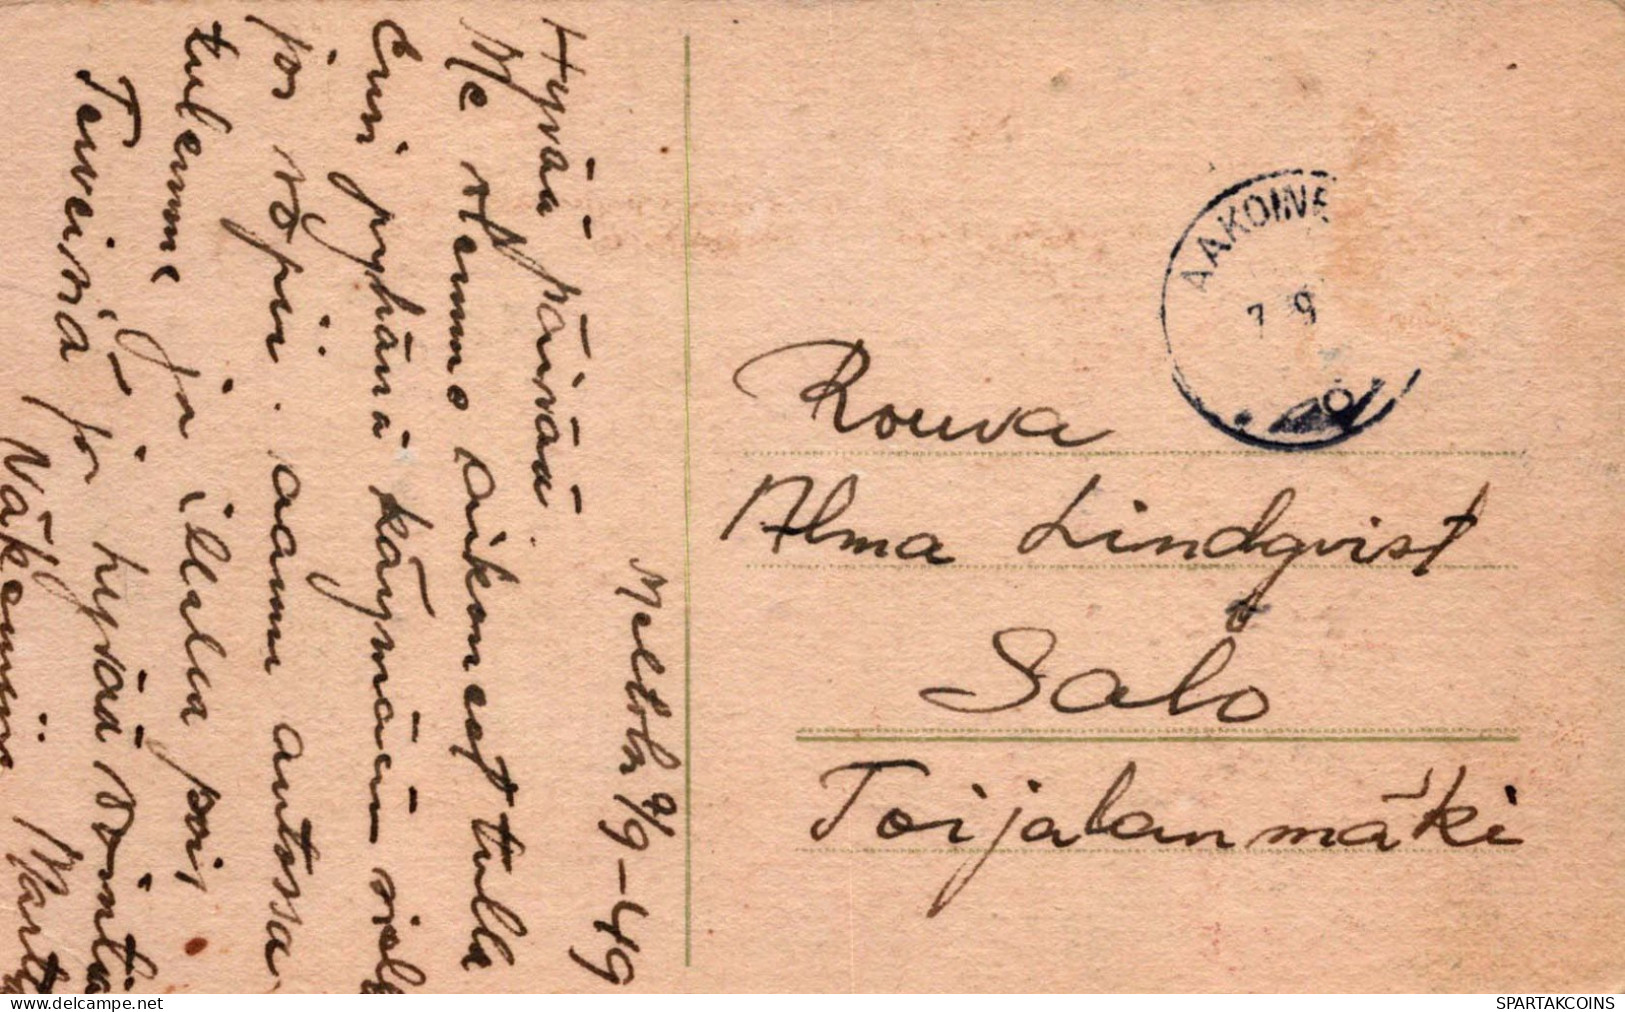 Meltola 9/9-49
Hyvää päivää
Me olemme aikoneet tulla
Ensi pyhänä käymään siellä
jos sopii. aamu autossa
tulemme ja illalla pois,
Terveisiä ja hyvää vointia
Näkemiin Martta
Rouva
Alma Lindqvist
Salo
Toijalanmäki
AAKOINE
7 9
SPARTAKCOINS